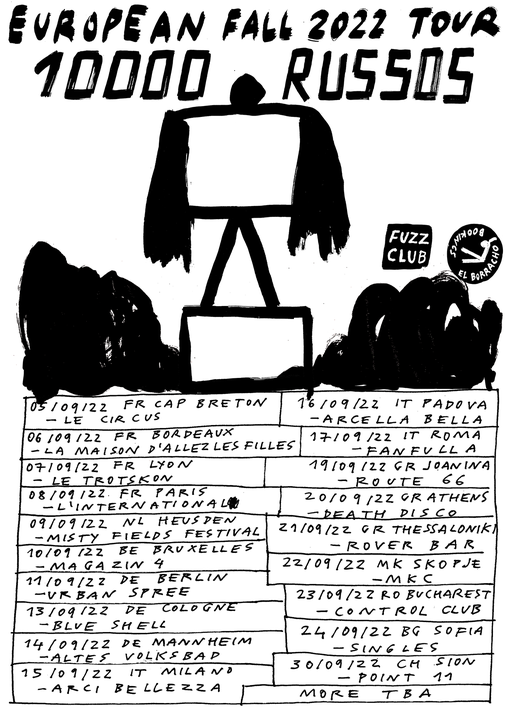 EUROPEAN FALL 2022 TOUR
10000 RUSSOS
FUZZ
CLUB
EL BORRACHO
BOOKINGS
05/09/22 FR CAP BRETON
- LE CIRCUS
06/09/22 FR BORDEAUX
- LA MAISON D'ALLEZ LES FILLES
07/09/22 FR LYON
- LE TROTSKON
08/09/22. FR PARIS
- L'INTERNATIONAL
09/09/22 NL HEUSDEN
- MISTY FIELDS FESTIVAL
10/09/22 BE BRUXELLES
- MAGAZIN 4
11/09/22 DE BERLIN
- URBAN SPREE
13/09/22 DE COLOGNE
- BLUE SHELL
14/09/22 DE MANNHEIM
- ALTES VOLKSBAD
15/09/22 IT MILANO
- ARCI BELLEZZA
16/09/22 IT PADOVA
- ARCELLA BELLA
17/09/22 IT ROMA
- FANFULLA
19/09/22 GR IOANINA
- ROUTE 66
20/09/22 GR ATHENS
- DEATH DISCO
21/09/22 GR THESSALONIKI
- ROVER BAR
22/09/22 MK SKOPJE
- MKC
23/09/22 RO BUCHAREST
- CONTROL CLUB
24/09/22 BG SOFIA
- SINGLES
30/09/22 CH SION
- POINT 11
MORE TBA